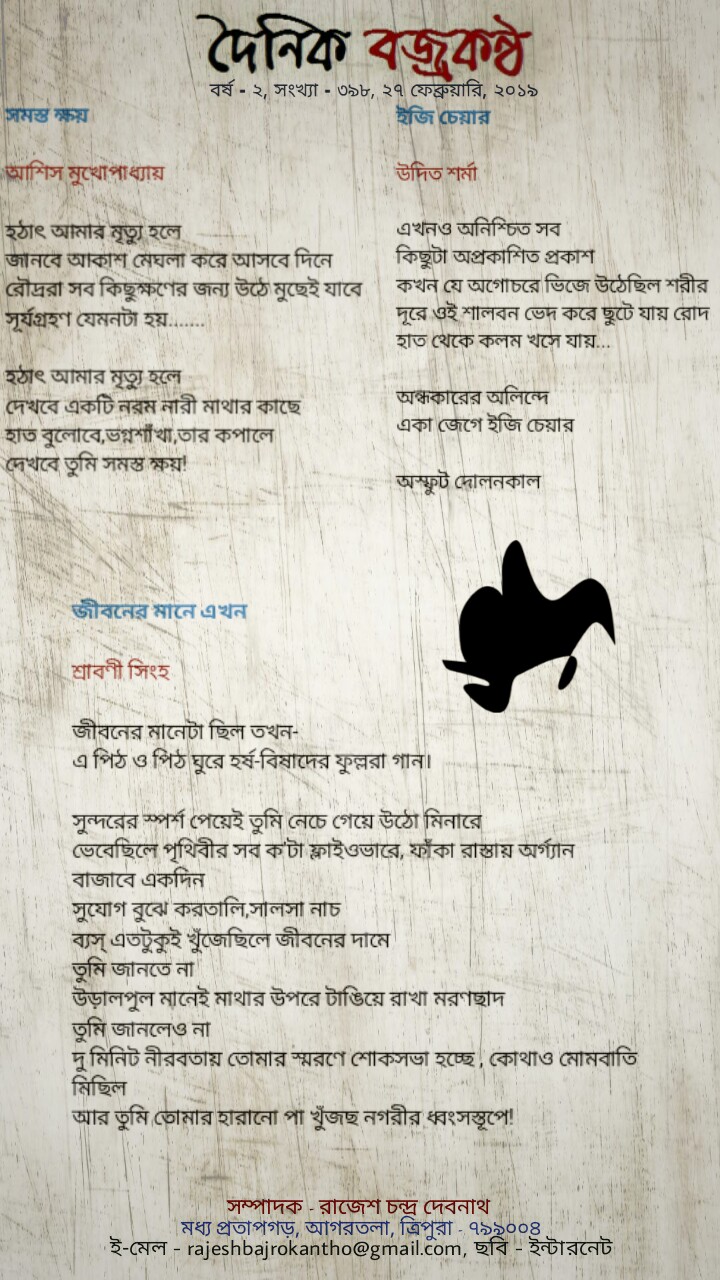 দৈনিক বজ্রকন্ঠ
বর্ষ - ২, সংখ্যা - ৩৯৮, ২৭ ফেব্রুয়ারি, ২০১৯
সমস্ত ক্ষয়
আশিস মুখোপাধ্যায়
হঠাৎ আমার মৃত্যু হলে
জানবে আকাশ মেঘলা করে আসবে দিনে
রৌদ্ররা সব কিছুক্ষণের জন্য উঠে মুছেই যাবে
সূর্যগ্রহণ যেমনটা হয়.......
হঠাৎ আমার মৃত্যু হলে
দেখবে একটি নরম নারী মাথার কাছে
হাত বুলোবে,ভগ্নশাঁখা,তার কপালে
দেখবে তুমি সমস্ত ক্ষয়!
ইজি চেয়ার
উদিত শর্মা
এখনও অনিশ্চিত সব
কিছুটা অপ্রকাশিত প্রকাশ
কখন যে অগোচরে ভিজে উঠেছিল শরীর
দূরে ওই শালবন ভেদ করে ছুটে যায় রোদ
হাত থেকে কলম খসে যায়...
অন্ধকারের অলিন্দে
একা জেগে ইজি চেয়ার
অস্ফুট দোলনকাল
জীবনের মানে এখন
শ্রাবণী সিংহ
জীবনের মানেটা ছিল তখন-
এ পিঠ ও পিঠ ঘুরে হর্ষ-বিষাদের ফুল্লরা গান।
সুন্দরের স্পর্শ পেয়েই তুমি নেচে গেয়ে উঠো মিনারে
ভেবেছিলে পৃথিবীর সব ক'টা ফ্লাইওভারে, ফাঁকা রাস্তায় অর্গ্যান
বাজাবে একদিন
সুযোগ বুঝে করতালি,সালসা নাচ
ব্যস্ এতটুকুই খুঁজেছিলে জীবনের দামে
তুমি জানতে না
উড়ালপুল মানেই মাথার উপরে টাঙিয়ে রাখা মরণছাদ
তুমি জানলেও না
দু মিনিট নীরবতায় তোমার স্মরণে শোকসভা হচ্ছে , কোথাও মোমবাতি
মিছিল
আর তুমি তোমার হারানো পা খুঁজছ নগরীর ধ্বংসস্তূপে!
সম্পাদক - রাজেশ চন্দ্র দেবনাথ
মধ্য প্রতাপগড়, আগরতলা, ত্রিপুরা - ৭৯৯০০৪
ই-মেল - rajeshbajrokantho@gmail.com, ছবি - ইন্টারনেট